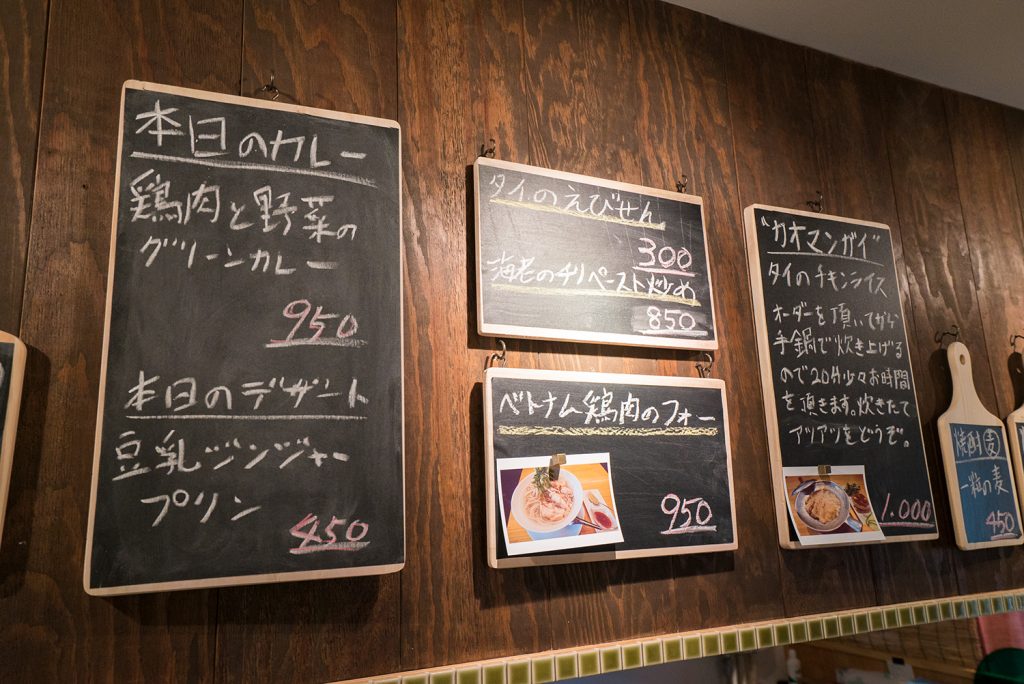 本日のカレー
鶏肉と野菜の
グリーンカレー
950
本日のデザート
豆乳ジンジャー
プリン
450
タイのえびせん
300
海老のチリペースト炒め
850
ベトナム鶏肉のフォー
950
"カオマンガイ"
タイのチキンライス
オーダーを頂いてから
手鍋で炊き上げる
ので20分少々お時間
を頂きます。炊きたて
アツアツをどうぞ。
1.000
焼酎 麦
一粒の麦
450